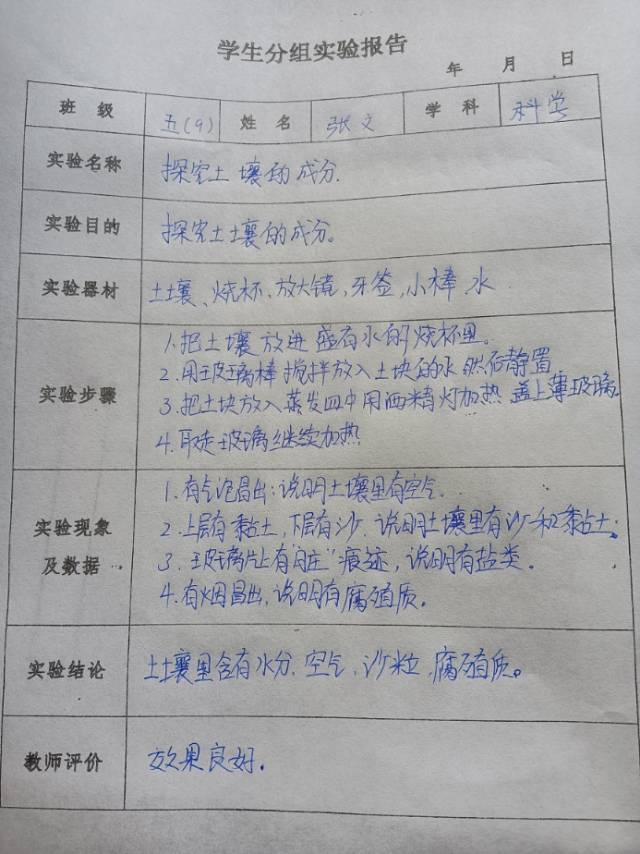 学生分组实验报告
年 月 日
班级 五(9) 姓名 张文 学科 科学
实验名称 探究土壤的成分.
实验目的 探究土壤的成分。
实验器材 土壤、烧杯、放大镜,牙签,小棒 水
实验步骤
1.把土壤放进盛有水的烧杯里。
2.用玻璃棒搅拌放入土块的水 然后静置
3.把土块放入蒸发皿中用酒精灯加热 盖上薄玻璃.
4.取走玻璃继续加热
实验现象及数据
1.有气泡冒出:说明土壤里有空气.
2.上层有黏土,下层有沙.说明土壤里有沙和黏土.
3.玻璃片上有 痕迹,说明有盐类.
4.有烟冒出,说明有腐殖质.
实验结论 土壤里含有水分.空气,沙粒,腐殖质。
教师评价 效果良好.